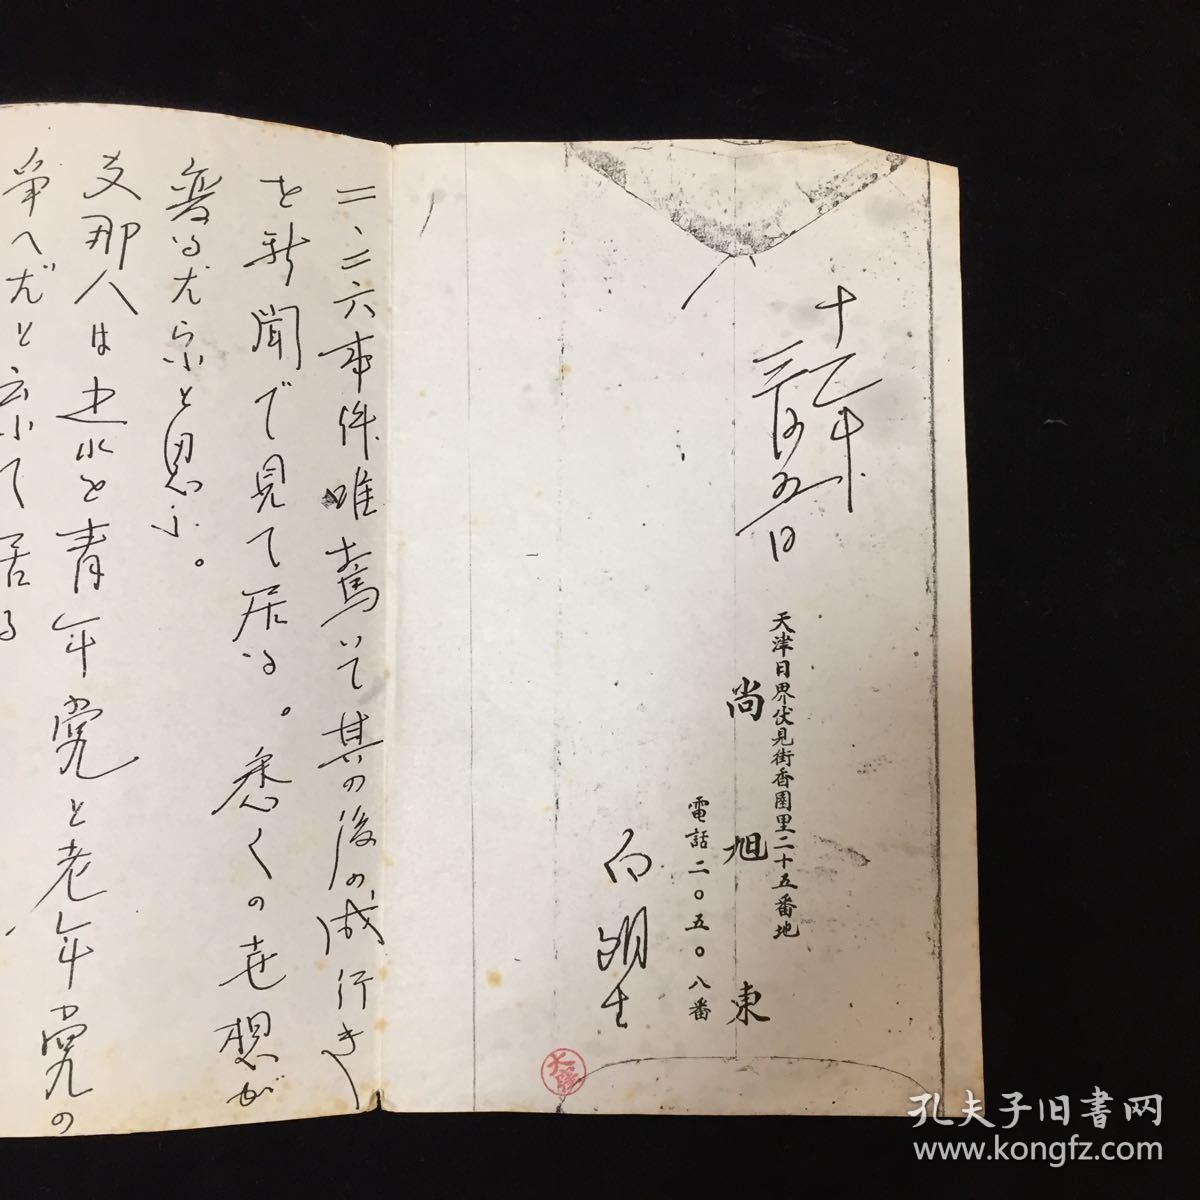 十一年
三月九日
天津日界伏見街香園里二十五番地
尚旭東
電話二〇五〇八番
白朗生
大
二、二六事件唯驚いて其の後の成行き
を新聞で見て居る。悉くの世想が
変るだらふと思ふ。
支那人は之れを青年党と老年党の
争へだと云ふて居る
孔夫子旧书网
www.kongfz.com